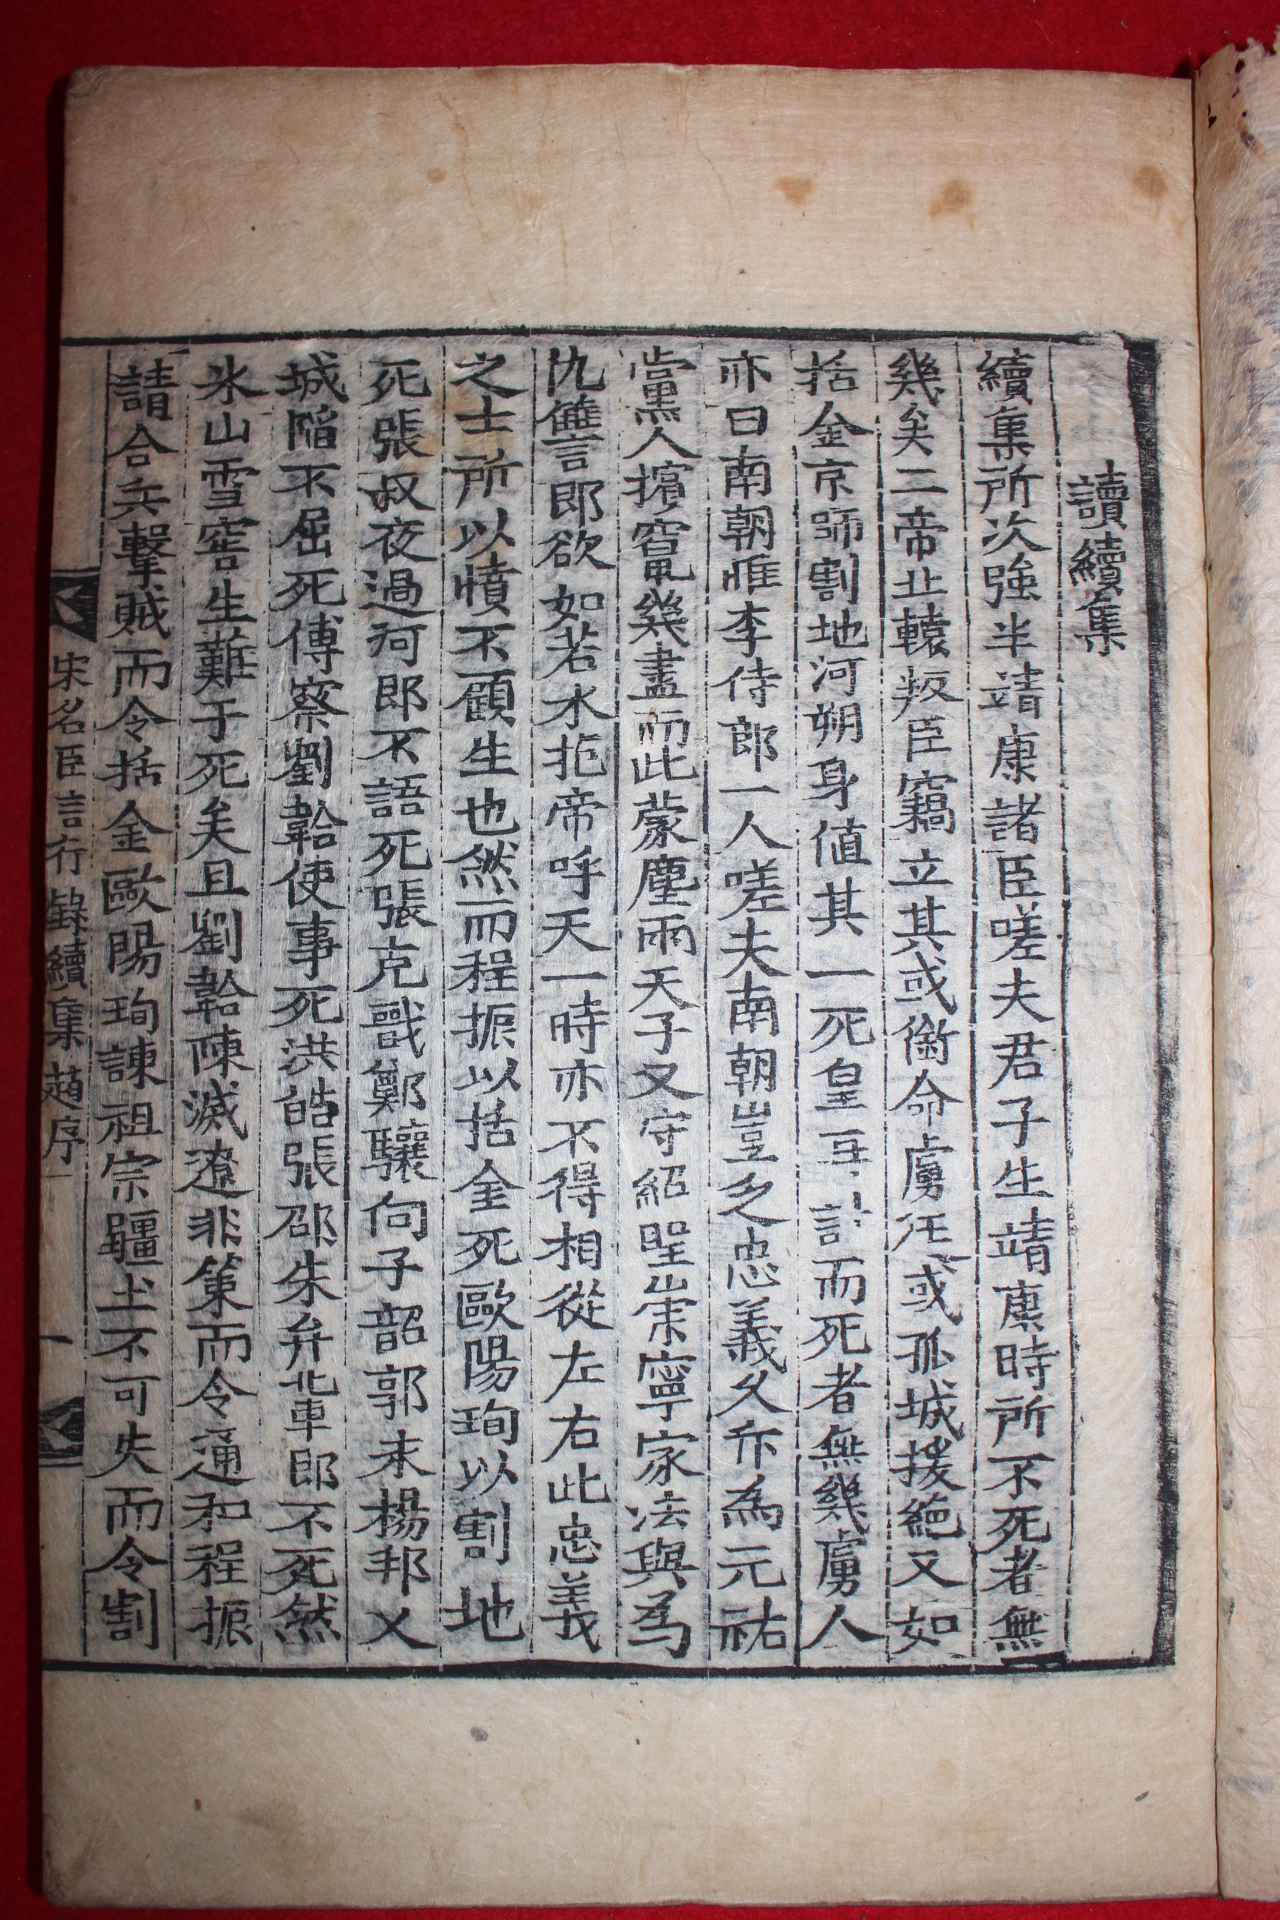 讀續集
續集所次強半靖康諸臣嗟夫君子生靖康時所不死者無
幾矣二帝北轅叛臣竊立其或銜命虜廷或孤城援絕又如
括金京師割地河朔身値其一死皇再計而死者無幾虜人
亦曰南朝惟李侍郎一人嗟夫南朝豈乏忠義久斥為元祐
黨人擯竄幾盡而此蒙塵兩天子又守紹聖崇寧家法與為
仇讎言郎欲如若水抱帝呼天一時亦不得相從左右此忠義
之士所以憤不顧生也然而程振以括金死歐陽珣以割地
死張叔夜過河郎不語死張克戩鄭驤向子韶郭末楊邦乂
城陷不屈死傅察劉韐使事死洪皓張邵朱弁北車郎不死然
氷山雪窖生難于死矣且劉韐陳滅遼非策而令通和程振
請合兵擊賊而令括金歐陽珣諫祖宗疆土不可失而令割
宋名臣言行錄續集趙序 一